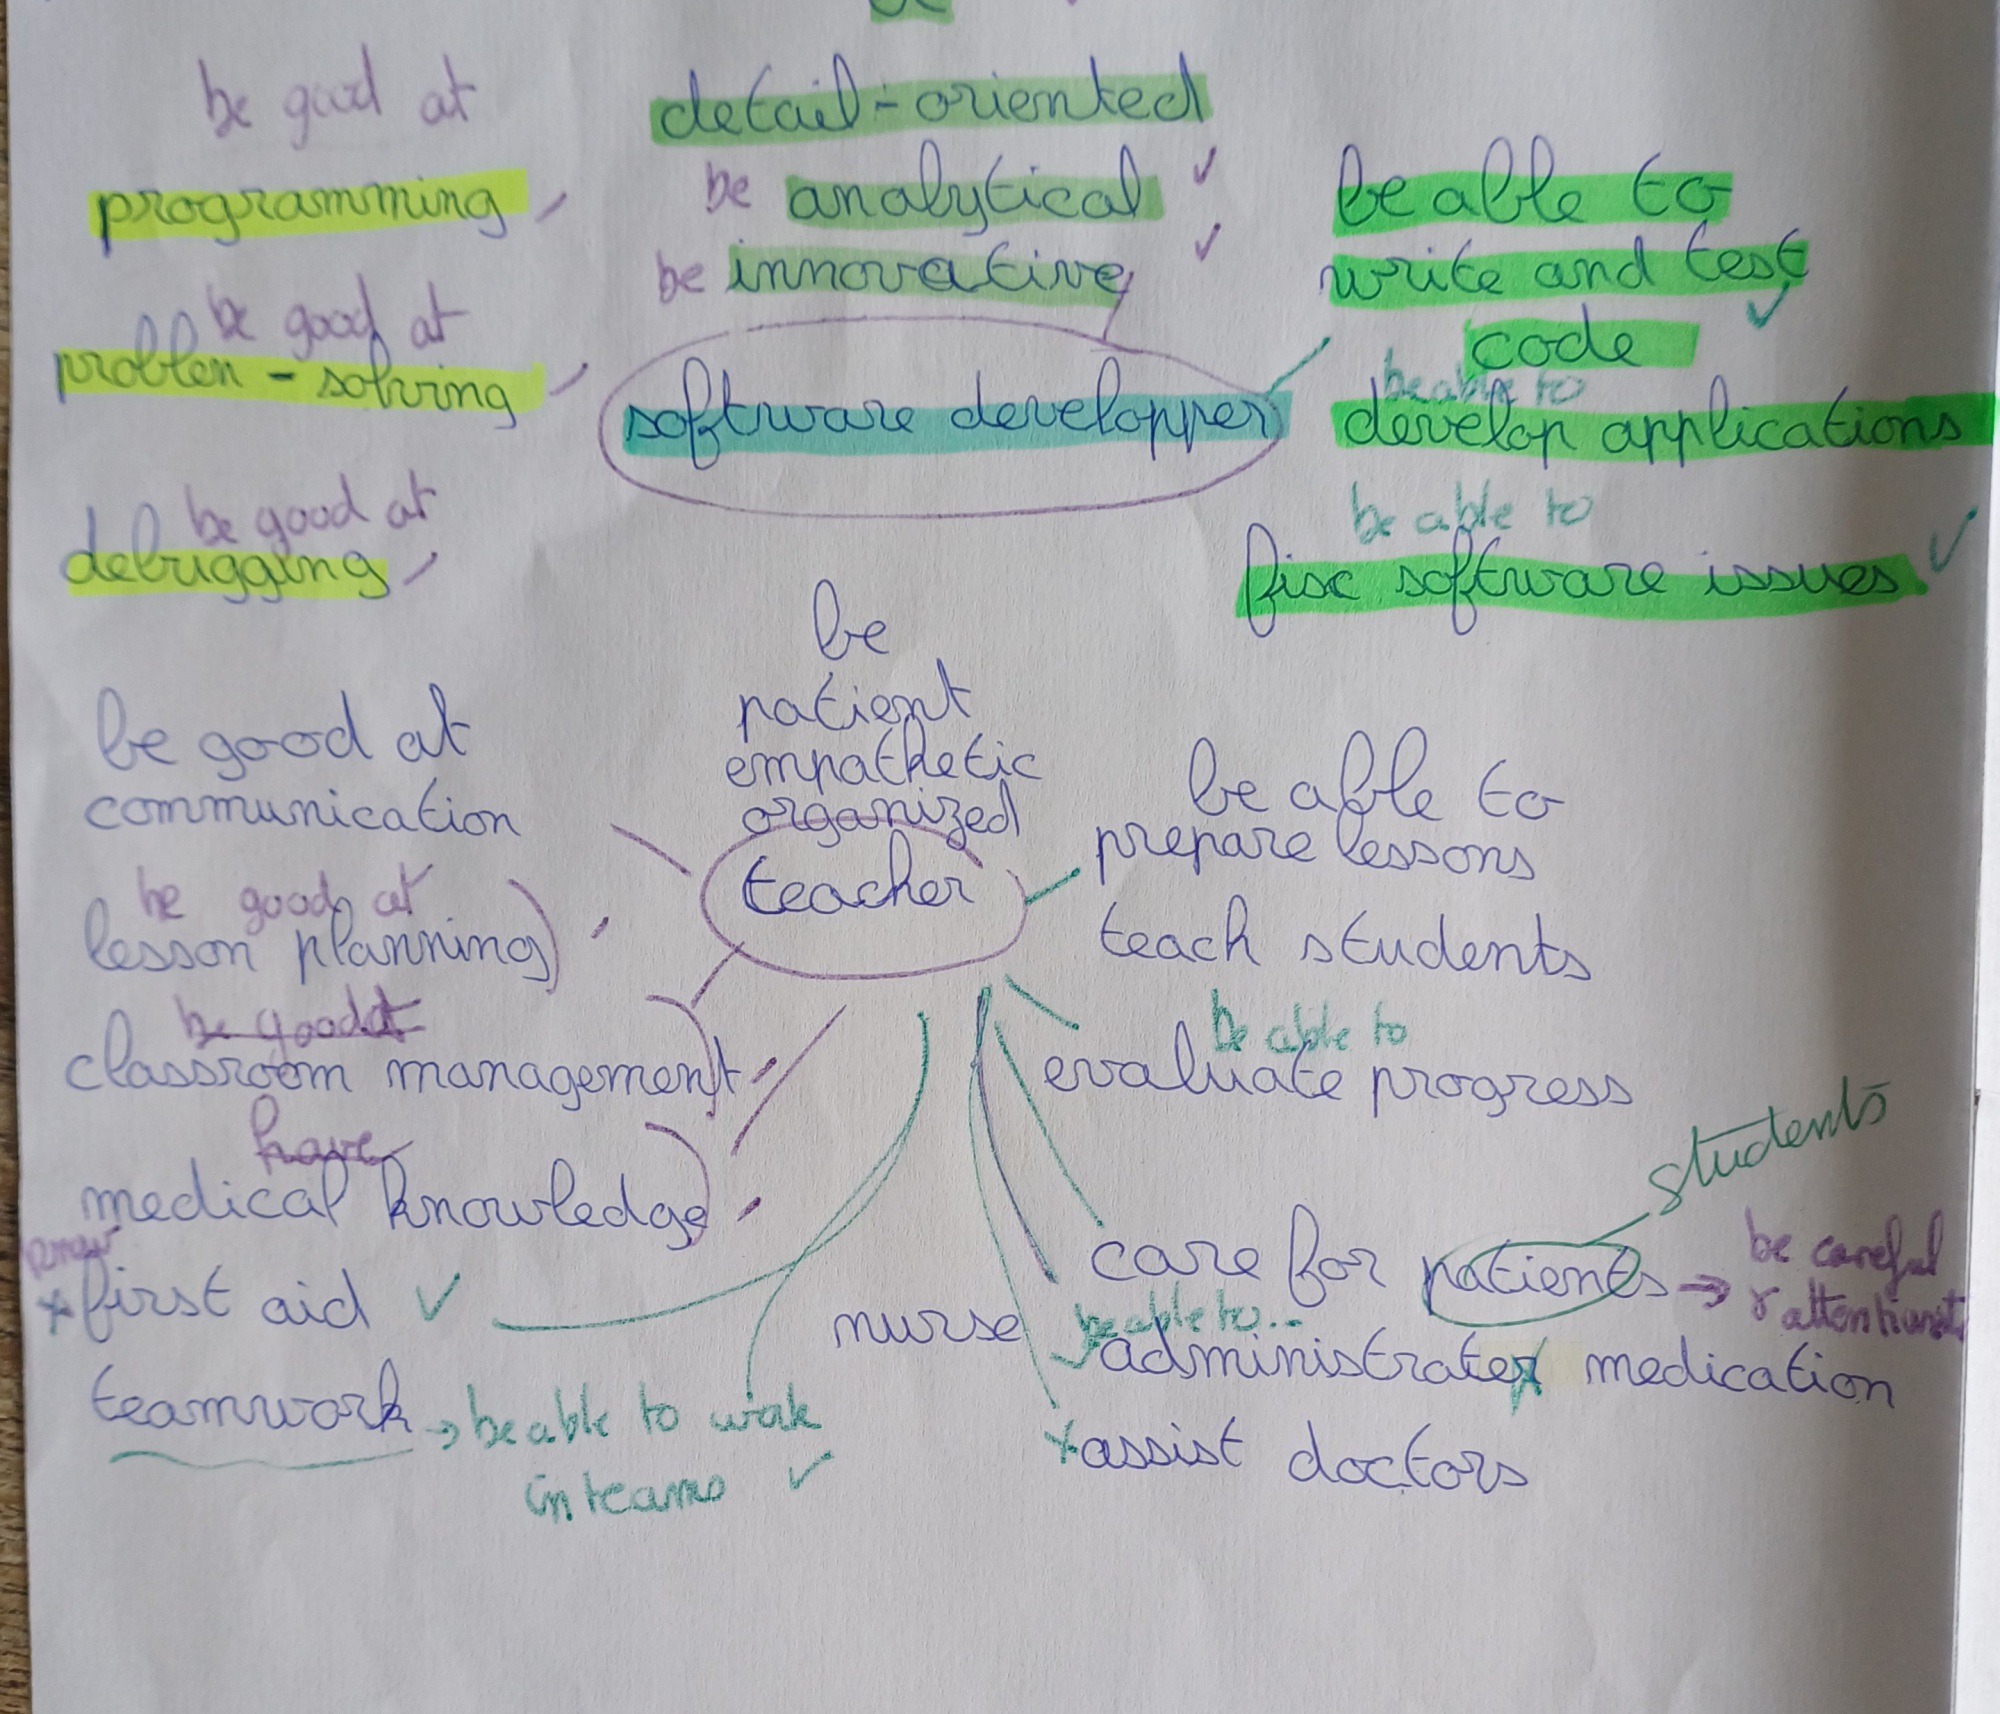 be
be good at
programming
be good at
problem - solving
be good at
debugging
detail-oriented
be analytical
be innovative
software developper
be able to
write and test
code
be able to
develop applications
be able to
fisc software issues
be
patient
empathetic
organized
teacher
be good at
communication
be good at
lesson planning
be good at
classroom management
have
medical knowledge
first aid
teamwork → be able to work
in teams
be able to
prepare lessons
teach students
be able to
evaluate progress
students
care for patients → be careful
nurse
be able to...
administrate medication
assist doctors